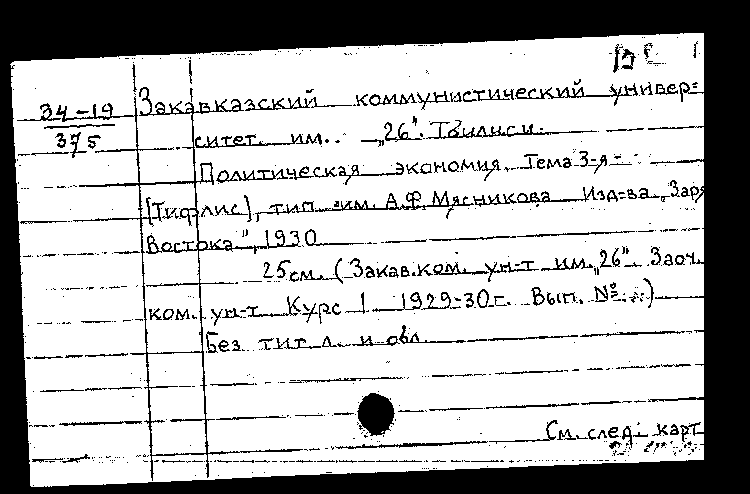 34-19
375
Закавказский коммунистический универ-
ситет им. „26“. Тбилиси.
Политическая экономия. Тема 3-я-
[Тифлис], тип. им. А.Ф. Мясникова Изд-ва „Заря
Востока“, 1930
25см. (Закав. ком. ун-т им. „26“. Заоч.
ком. ун-т Курс I 1929-30г. Вып. №
Без тит л. и обл.
См. след. карт